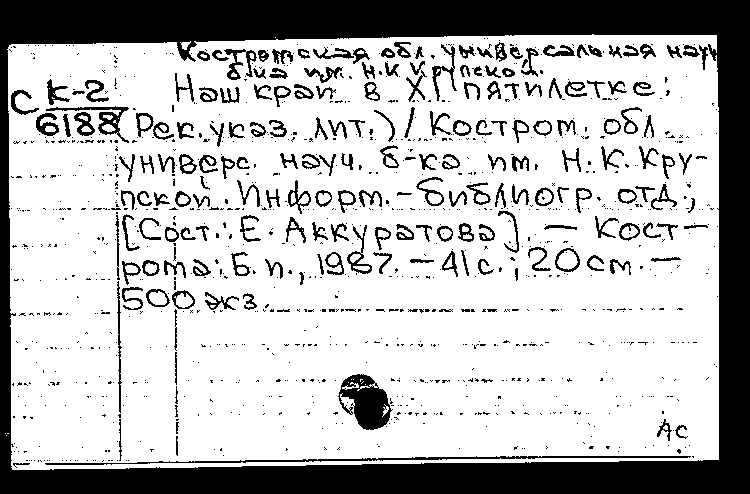 Костромская обл. универсальная науч
б-ка им. Н.К Крупской.
С К-2 Наш край в XI пятилетке:
6188 (Рек. указ. лит.) / Костром. обл.
универс. науч. б-ка им. Н.К. Кру-
пской. Информ.-библиогр. отд.;
[Сост.: Е. Аккуратова]. — Кост-
рома: Б. и., 1987. — 41 с.; 20 см. —
500 экз.
АС